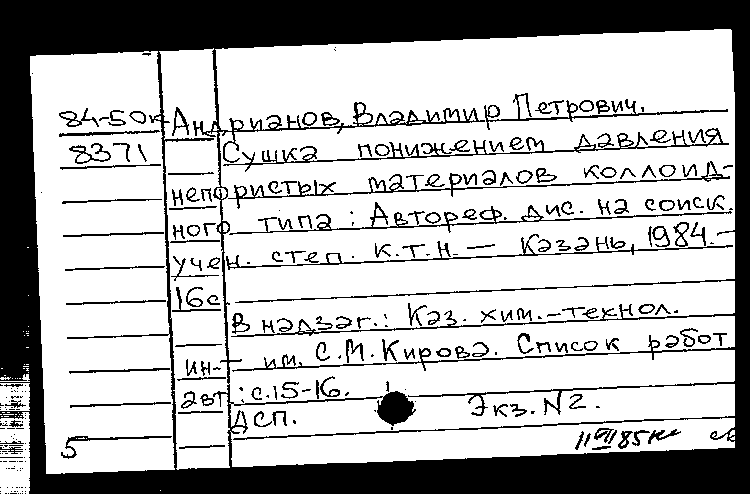 84-50к Андрианов, Владимир Петрович.
8371 Сушка понижением давления
непористых материалов коллоид-
ного типа : Автореф. дис. на соиск.
учен. степ. к.т.н. — Казань, 1984.—
16с.
В надзаг.: Каз. хим.-технол.
ин-т им. С.М.Кирова. Список работ
авт.: с.15-16.
ДСП. Экз. N2.
5